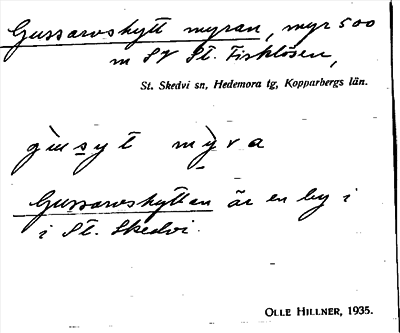 Gussarvskytt myran, myr 500
m SV St. Fisklösen,
St. Skedvi sn, Hedemora tg, Kopparbergs län.
gùsyt mỳra
Gussarvskyttan är en by i
i St. Skedvi.
OLLE HILLNER, 1935.